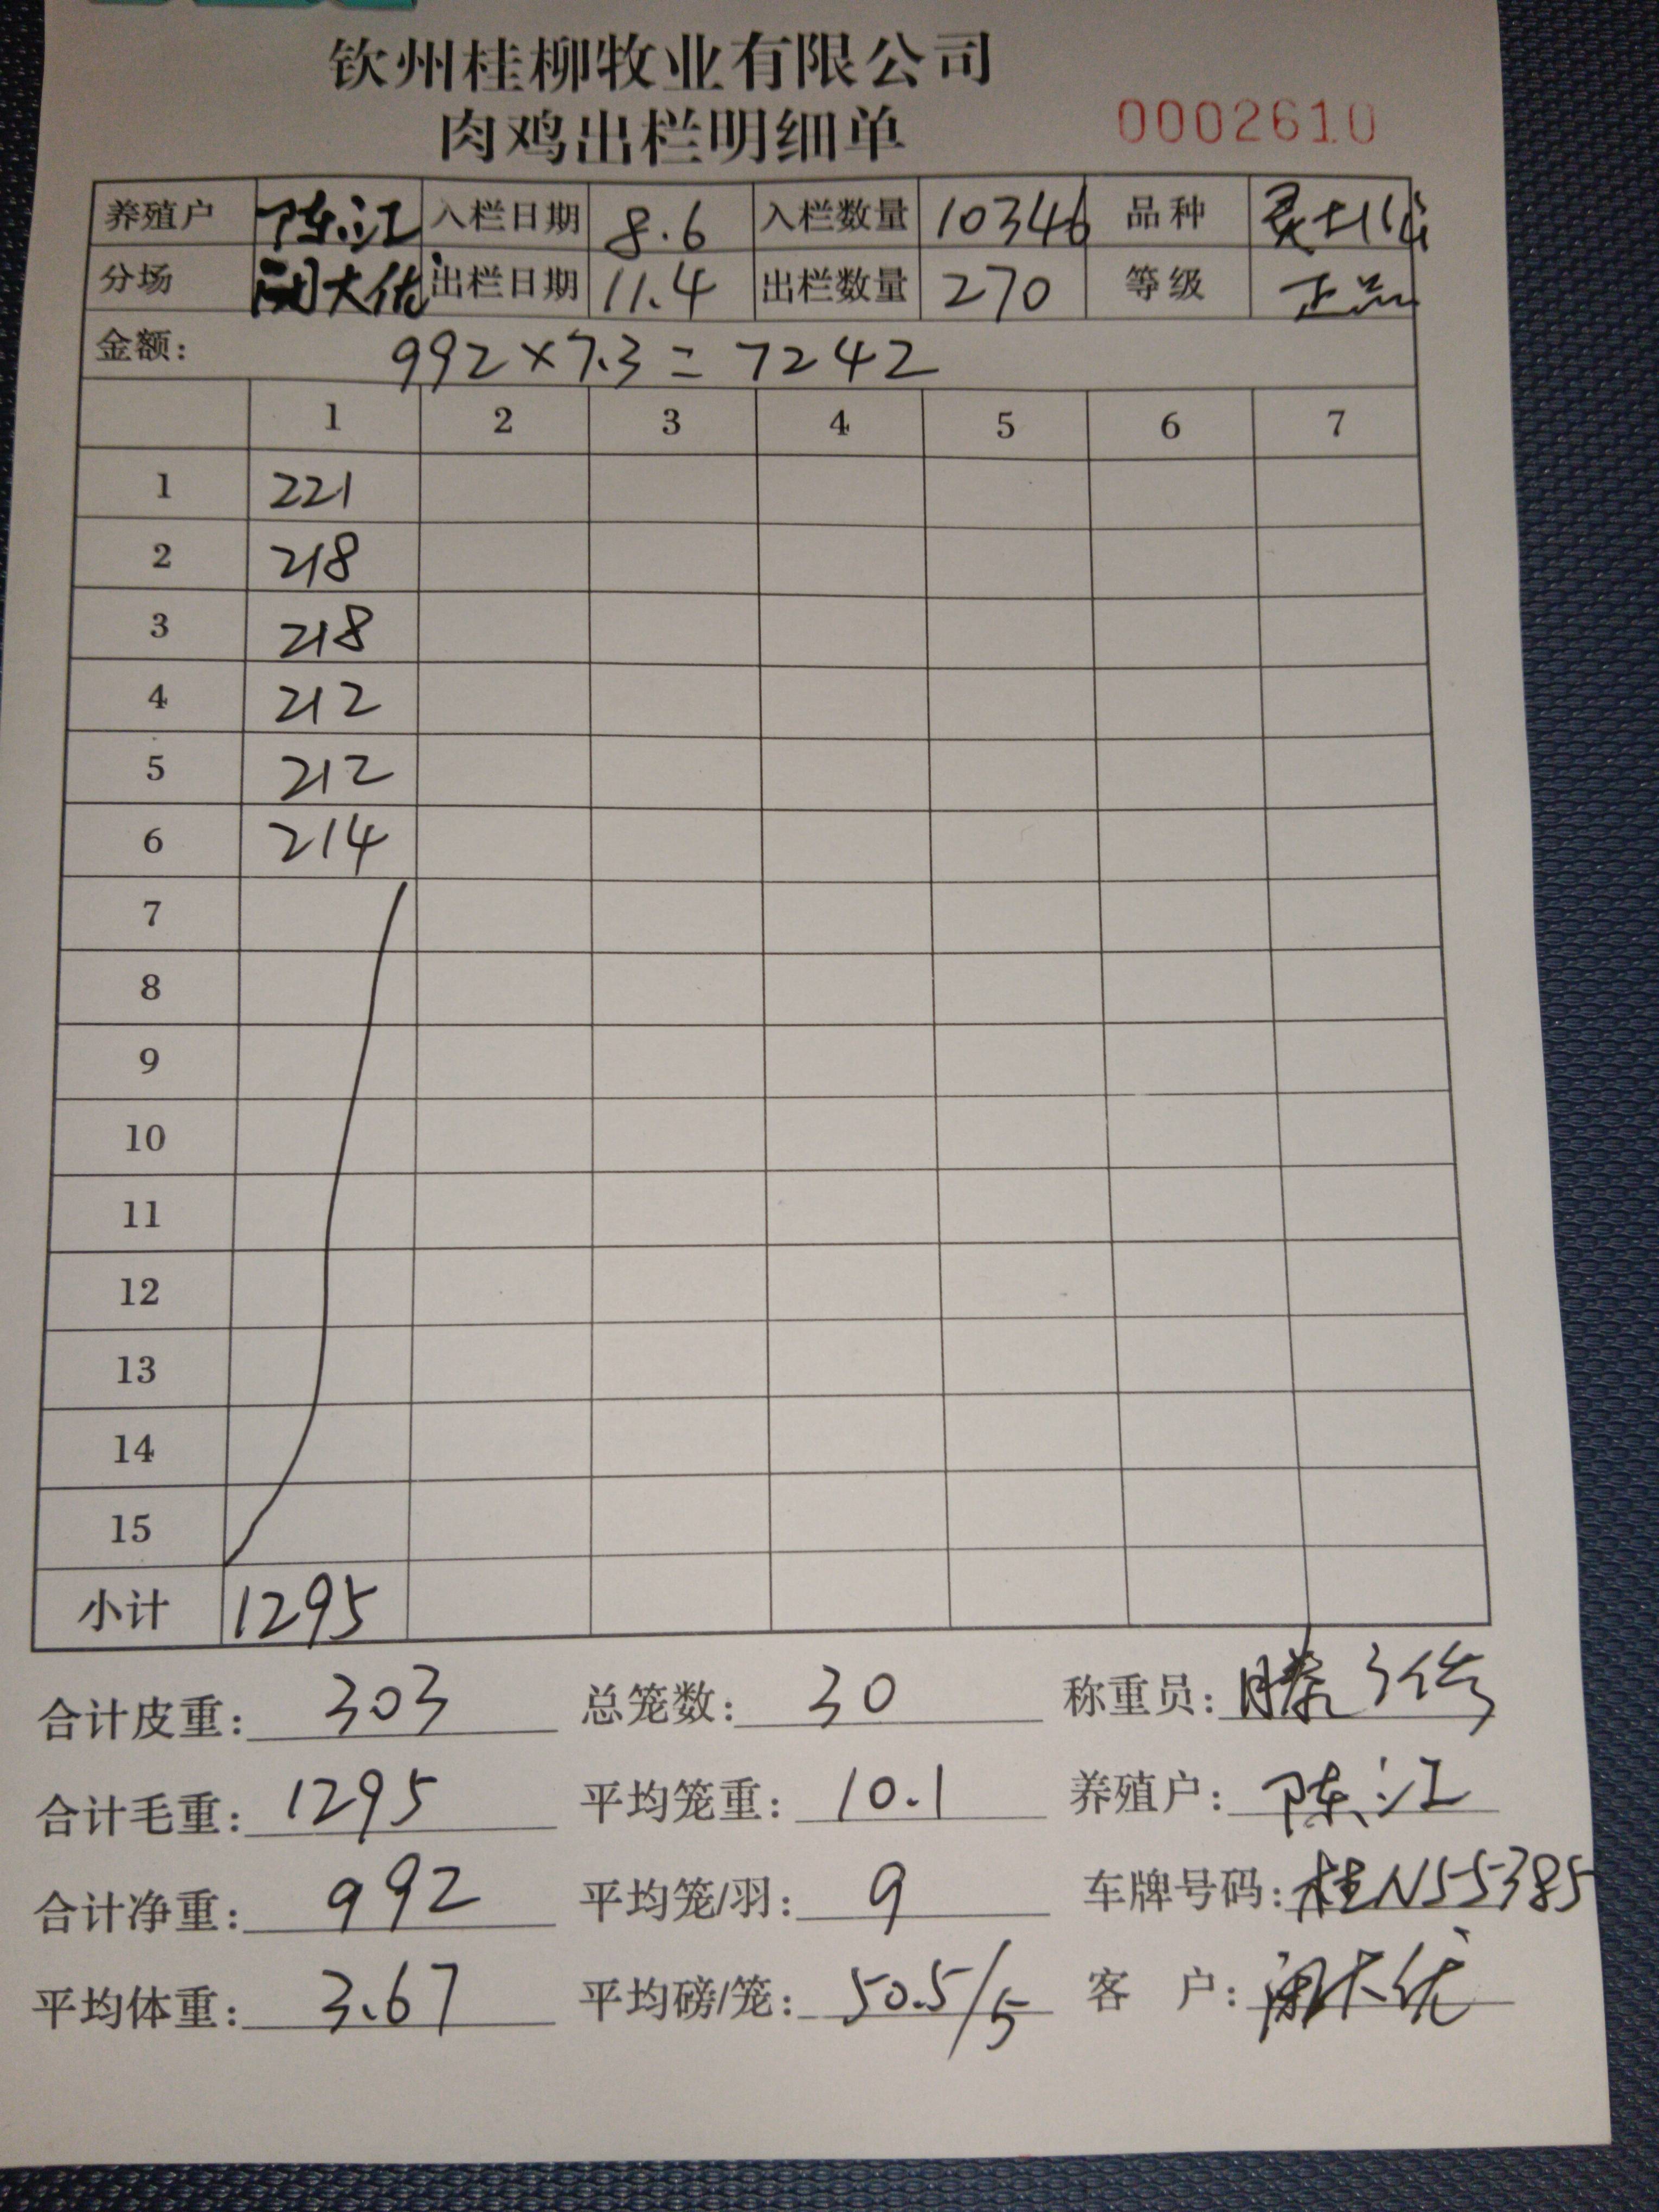 钦州桂柳牧业有限公司
肉鸡出栏明细单 0002610
养殖户 陈江 入栏日期 8.6 入栏数量 10346 品种
分场 大优 出栏日期 11.4 出栏数量 270 等级 正品
金额: 992×7.3=7242
1 2 3 4 5 6 7
1 221
2 218
3 218
4 212
5 212
6 214
7
8
9
10
11
12
13
14
15
小计 1295
合计皮重: 303 总笼数: 30 称重员:
合计毛重: 1295 平均笼重: 10.1 养殖户: 陈江
合计净重: 992 平均笼/羽: 9 车牌号码: 桂N55385
平均体重: 3.67 平均磅/笼: 50.5/5 客 户: 大优